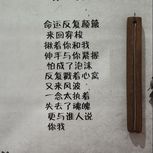 命运反复颠簸
来回穿梭
揪着你和我
伸手与你紧握
怕成了泡沫
反复戳着心窝
又来风波
一念太执着
失去了魂魄
更与谁人说
你我